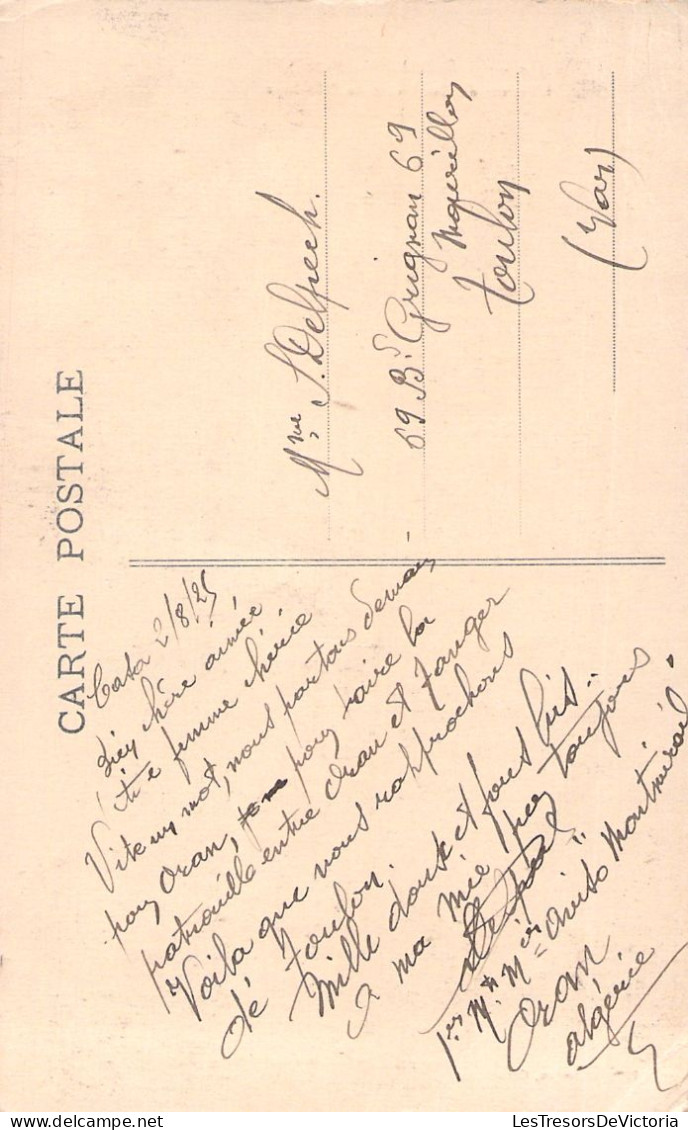 CARTE POSTALE
Casa 2/8/25
chère aimée
femme chérie
Vite un mot, nous partons demain
pour Oran, pour faire la
patrouille entre Oran et Tanger
Voila que nous rapprochons
de Toulon.
Mille doux et fous bis.
a ma Mie pour toujours
Delpech
1er Mtre Aviso Montmirail
Oran
Algérie
Mme S. Delpech.
69 Bd Grignan 69
Mourillon
Toulon
(Var)
LesTresorsDeVictoria.com